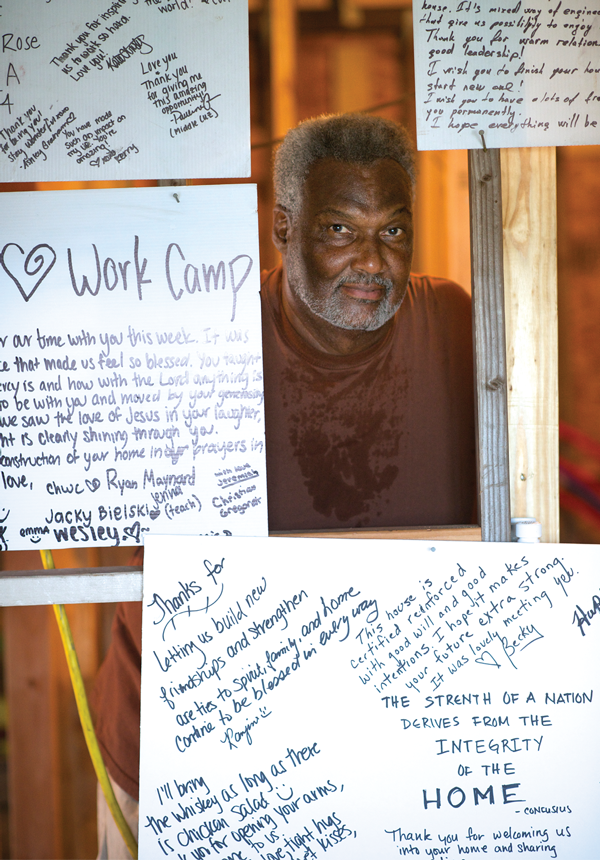 Rose
A
4
Thank you for inspiring
us to work so hard.
Love you!
world!
Love you
Thank you
for giving me
this amazing
opportunity!
(Middle
Thank you
for being
You have made
such an impact on
my life. You're
amazing!
Kerry
house. It's mixed way of enginee
that give us possibility to enjoy
Thank you for warm relation
good leadership!
I wish you to finish your hou
start new one!
I wish you to have a lots of fri
you permanently.
I hope everything will be
♡ Work Camp
r our time with you this week. It was
ce that made us feel so blessed. You taught
ercy is and how with the Lord anything is
o be with you and moved by your generosity
we saw the love of Jesus in your laughter,
ht is clearly shining through you.
construction of your home in our prayers in
love, CHWC ♡ Ryan Maynard
Jenna
(teach)
with love
Jeremiah
Christian
Gregorek
Jacky Bielski
emma Wesley
Thanks for
letting us build new
friendships and strengthen
are ties to spirit, family, and home
Continue to be blessed in every way
This house is
certified reinforced
with good will and good
intentions. I hope it makes
your future extra strong.
It was lovely meeting you.
♡ Becky
THE STRENTH OF A NATION
DERIVES FROM THE
INTEGRITY
OF THE
HOME
- CONCUSIUS
I'll bring
the whiskey as long as there
is chicken salad
k you for opening your arms,
to us
love, tight hugs
kisses,
Thank you for welcoming us
into your home and sharing